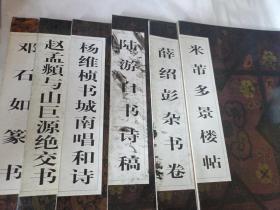 邓石如篆书
赵孟頫与山巨源绝交书
杨维桢书城南唱和诗
陆游自书诗稿
薛绍彭杂书卷
米芾多景楼帖